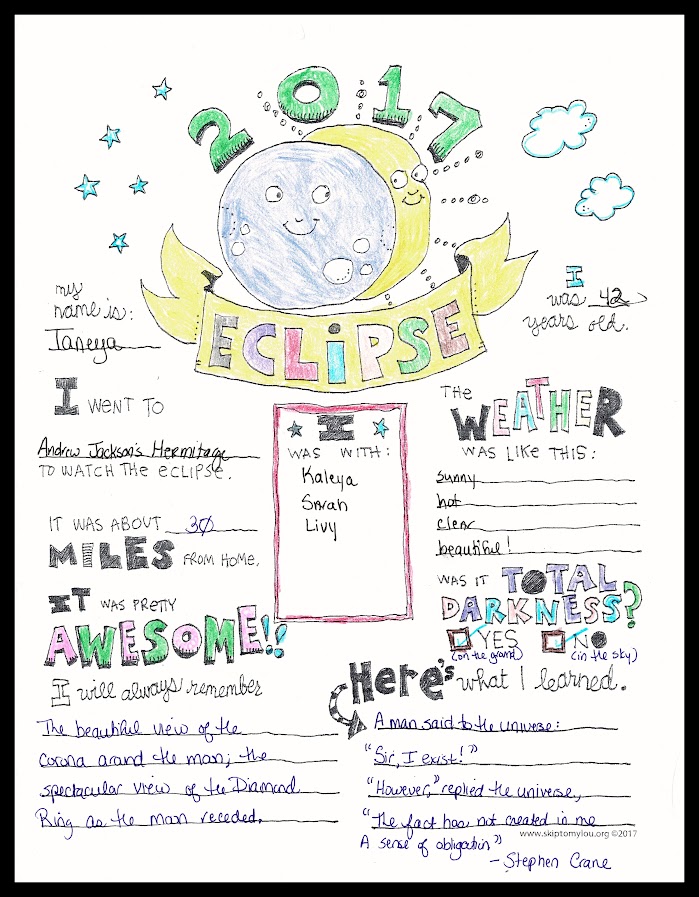 2017
ECLIPSE
my
name is:
Taneya
I
was 42
years old.
I WENT TO
Andrew Jackson's Hermitage
TO WATCH THE ECLIPSE.
IT WAS ABOUT 30
MILES FROM HOME.
IT WAS PRETTY
AWESOME!!
I will always remember
The beautiful view of the
Corona around the moon; the
spectacular view of the Diamond
Ring as the moon receded.
I
WAS WITH:
Kaleya
Sarah
Livy
THE
WEATHER
WAS LIKE THIS:
sunny
hot
clear
beautiful!
WAS IT TOTAL
DARKNESS?
YES NO
(on the ground) (in the sky)
Here's what I learned.
A man said to the universe:
"Sir, I exist!"
"However," replied the universe,
"The fact has not created in me
www.skiptomylou.org ©2017
A sense of obligation"
- Stephen Crane